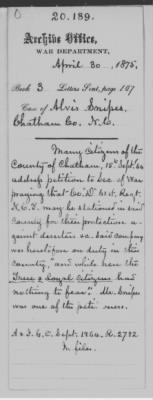 20.189.
Archive Office,
WAR DEPARTMENT,
April 30, 1875,
Book 3 Letters Sent, page 107
Case of Alvis Snipes,
Chatham Co. N.C.
Many Citizens of the
County of Chatham, 15" Sept. 64
address petition to Sec. of War
praying that Co. "D" 61st Regt.
N.C.T. may be stationed in said
County for their protection a-
gainst deserters &c. Said company
was heretofore on duty in this
County, "and while here the
True & Loyal Citizens had
nothing to fear". Mr. Snipes
was one of the petitioners.
A & I.G.O. Sept. 1864. R. 2792
In files.